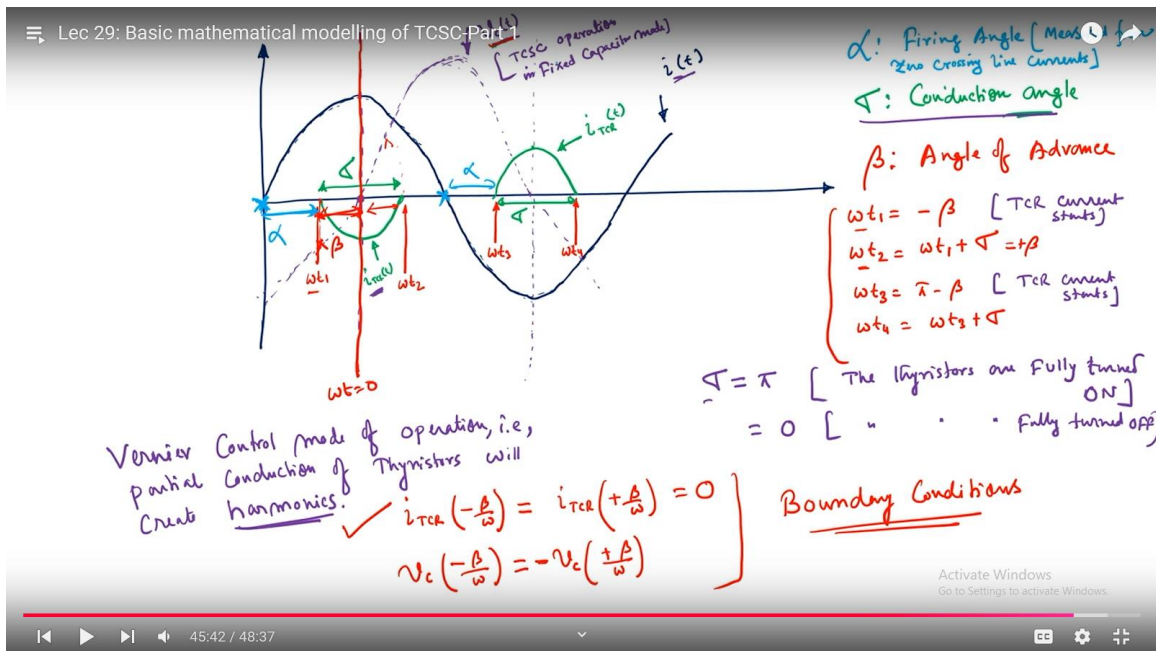 Lec 29: Basic mathematical modelling of TCSC-Part 1
(t)
[TCSC operation
in Fixed Capacitor mode]
i(t)
α: Firing Angle [Measured from
zero crossing line currents]
σ: Conduction angle
β: Angle of Advance
i_TCR(t)
σ
α
α
β
σ
ωt₁
i_TCR(t)
ωt₂
ωt₃
ωt₄
ωt=0
ωt₁ = -β [TCR current
starts]
ωt₂ = ωt₁ + σ = +β
ωt₃ = π - β [TCR current
starts]
ωt₄ = ωt₃ + σ
σ = π [The Thyristors are Fully turned
ON]
= 0 [ " " " Fully turned OFF]
Vernier Control mode of operation, i.e,
partial conduction of Thyristors will
create harmonics.
i_TCR(-β/ω) = i_TCR(+β/ω) = 0
v_c(-β/ω) = -v_c(+β/ω)
Boundary Conditions
Activate Windows
Go to Settings to activate Windows.
45:42 / 48:37
CC